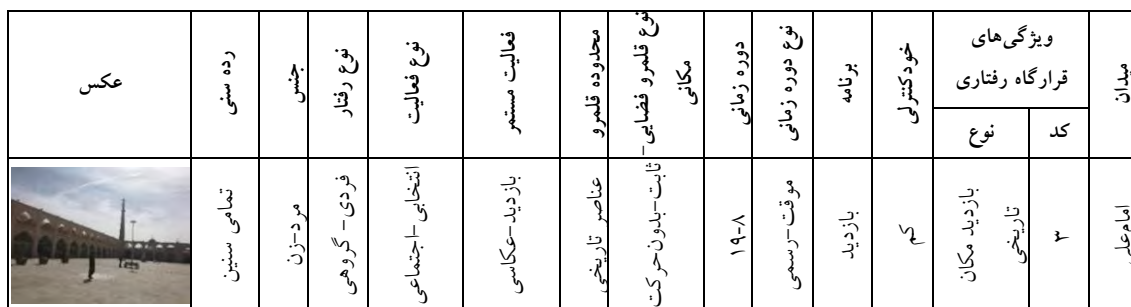 میدان
ویژگی‌های
قرارگاه رفتاری
کد
نوع
خودکنترلی
برنامه
نوع دوره زمانی
دوره زمانی
نوع قلمرو فضایی-
مکانی
محدوده قلمرو
فعالیت مستمر
نوع فعالیت
نوع رفتار
جنس
رده سنی
عکس
امام‌علی
۳
بازدید مکان
تاریخی
کم
بازدید
موقت-رسمی
۱۹-۸
ثابت-بدون‌حرکت
عناصر تاریخی
بازدید-عکاسی
انتخابی-اجتماعی
فردی- گروهی
مرد-زن
تمامی سنین